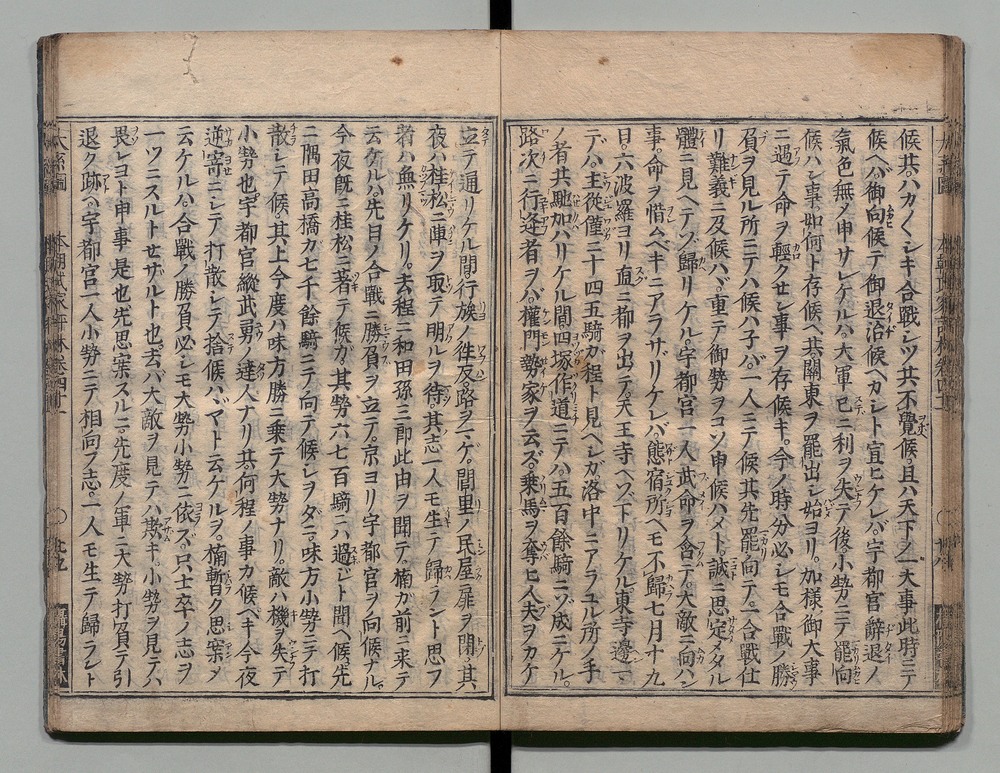 候共ハカ〱シキ合戰レツ共不覺候且ハ天下ノ一大事此時ニテ
候ヘバ御向候テ御退治候ヘカシト宜ヒケレバ宇都宮辭退ノ
氣色無ノ申サレケルハ大軍已ニ利ヲ失テ後小勢ニテ罷向
候ハン事如何ト存候ヘ共關東ヲ罷出シ始ヨリ加樣ノ御大事
ニ過テ命ヲ輕クせン事ヲ存候キ。今ノ時分必シモ合戰ノ勝
負ヲ見ル所ニテハ候ハ子バ一人ニテ候共先罷向テ一合戰仕
リ難義ニ及候ハバ重テ御勢ヲコソ申候ハメト。誠ニ思定メタル
體ニ見ヘテゾ歸リケル。宇都宮一人武命ヲ含テ。大敵ニ向ハン
事。命ヲ惜ムベキニアラザリケレバ態宿所ヘモ不歸七月十九
日。六波羅ヨリ直ニ都ヲ出テ。天王寺ヘゾ下リケル東寺邊マ
デハ主從僅ニ十四五騎ガ程ト見ヘシガ洛中ニアラユル所ノ手
ノ者共馳加ハリケル間四塚作道ニテハ五百餘騎ニゾ成ニケル。
路次ニ行逢者ヲバ權門勢家ヲ云ズ。乗馬ヲ奪ヒ人夫ヲカケ
立テ通リケル間。行旅ノ往反路ヲマゲ。閭里ノ民屋扉ヲ閉ヅ其
夜ハ桂松ニ陣ヲ取テ明ルヲ待其志一人モ生テ歸ラント思フ
者ハ無リケリ。去程ニ和田孫三郎此由ヲ聞テ。楠ガ前ニ来テ
云ケルハ先日ノ合戰ニ勝負ヲ立テ。京ヨリ宇都宮ヲ向候ナル
今夜既ニ桂松ニ著テ候ガ其勢六七百騎ニハ過ジト聞ヘ候先
ニ隅田高橋ガ七千餘騎ニテ向テ候シヲダニ味方小勢ニテ打
散シテ候。其上今度ハ味方勝ニ乗テ大勢ナリ。敵ハ機ヲ失テ
小勢也宇都宮縱武勇ノ達人ナリ共。何程ノ事カ候ベキ今夜
逆寄ニシテ打散シテ捨候ハバヤト云ケルヲ。楠暫ク思案メ
云ケルハ。合戰ノ勝負必シモ大勢小勢ニ依ズ。只士卒ノ志ヲ
一ツニスルトせザルト也。去バ大敵ヲ見テハ欺キ。小勢ヲ見テハ
畏レヨト申事是也先思案スルニ。先度ノ軍ニ大勢打負テ引
退ク跡ヘ宇都宮一人小勢ニテ相向フ志。一人モ生テ歸ラント